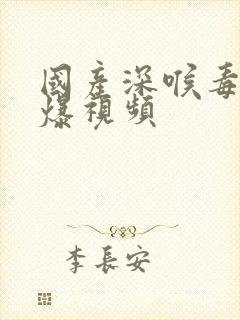 國產深喉毒
爆視頻
李長安